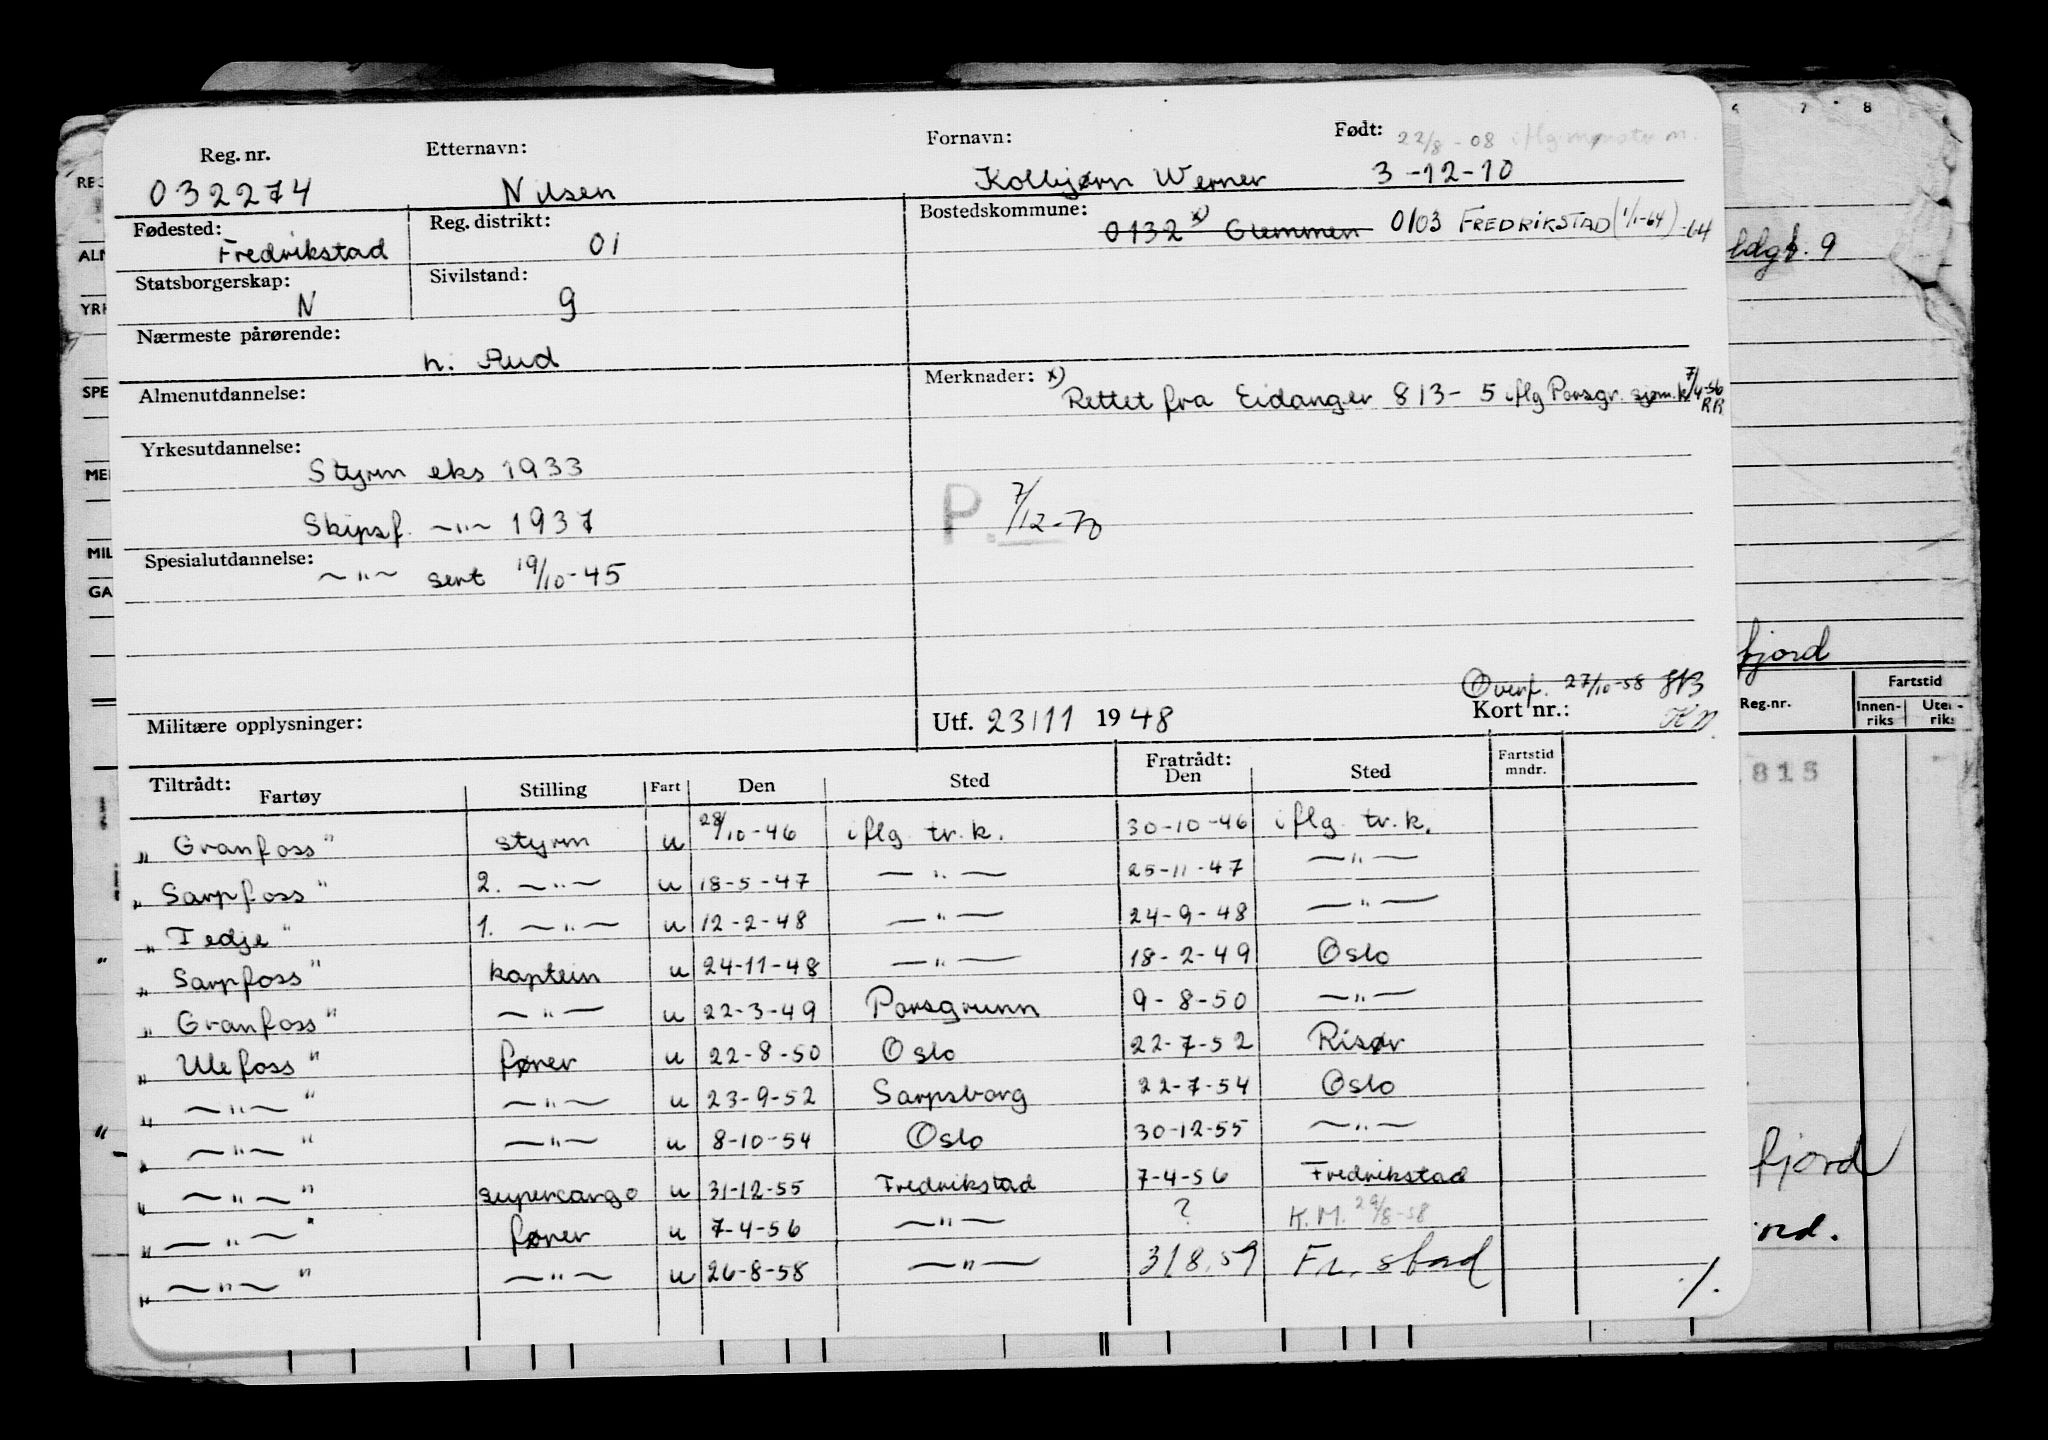 Reg. nr. Etternavn: Fornavn: Født: 22/8 - 08 iflg. mønstr. m.
032274 Nilsen Kolbjørn Werner 3-12-10
Fødested: Reg. distrikt: Bostedskommune:
Fredrikstad 01 0132 x) Glemmen 0103 FREDRIKSTAD (1/1-64) -64
Statsborgerskap: Sivilstand:
N g
Nærmeste pårørende:
h. Aud
Almenutdannelse: Merknader: x)
Rettet fra Eidanger 813-5 iflg Porsgr. sjøm.k 7/4-56 RR
Yrkesutdannelse:
Styrm eks 1933
Skipsf. —"— 1937 P. 7/12-70
Spesialutdannelse:
—"— sert 19/10-45
Overf. 27/10-58
Militære opplysninger: Utf. 23/11 1948 Kort nr.:
Tiltrådt: Fratrådt: Fartstid
Fartøy Stilling Fart Den Sted Den Sted mndr.
"Granfoss" styrm u 28/10-46 iflg tr. k. 30-10-46 iflg tr. k.
"Sarpfoss" 2. —"— u 18-5-47 —"— 25-11-47 —"—
"Tedje" 1. —"— u 12-2-48 —"— 24-9-48 —"—
"Sarpfoss" kaptein u 24-11-48 —"— 18-2-49 Oslo
"Granfoss" —"— u 22-3-49 Porsgrunn 9-8-50 —"—
"Ulefoss" fører u 22-8-50 Oslo 22-7-52 Risør
" —"— " —"— u 23-9-52 Sarpsborg 22-7-54 Oslo
" —"— " —"— u 8-10-54 Oslo 30-12-55 —"—
" —"— " supercargo u 31-12-55 Fredrikstad 7-4-56 Fredrikstad
" —"— " fører u 7-4-56 —"— ? K.M. 29/8-58
" —"— " —"— u 26-8-58 —"— 3/8.59 Fr.stad
./.
6 7 8
ldgt. 9
fjord
Fartstid
Reg.nr. Innen-riks Uten-riks
815
fjord
ord.
RE
ALM
YRK
SPE
MER
MIL
GA